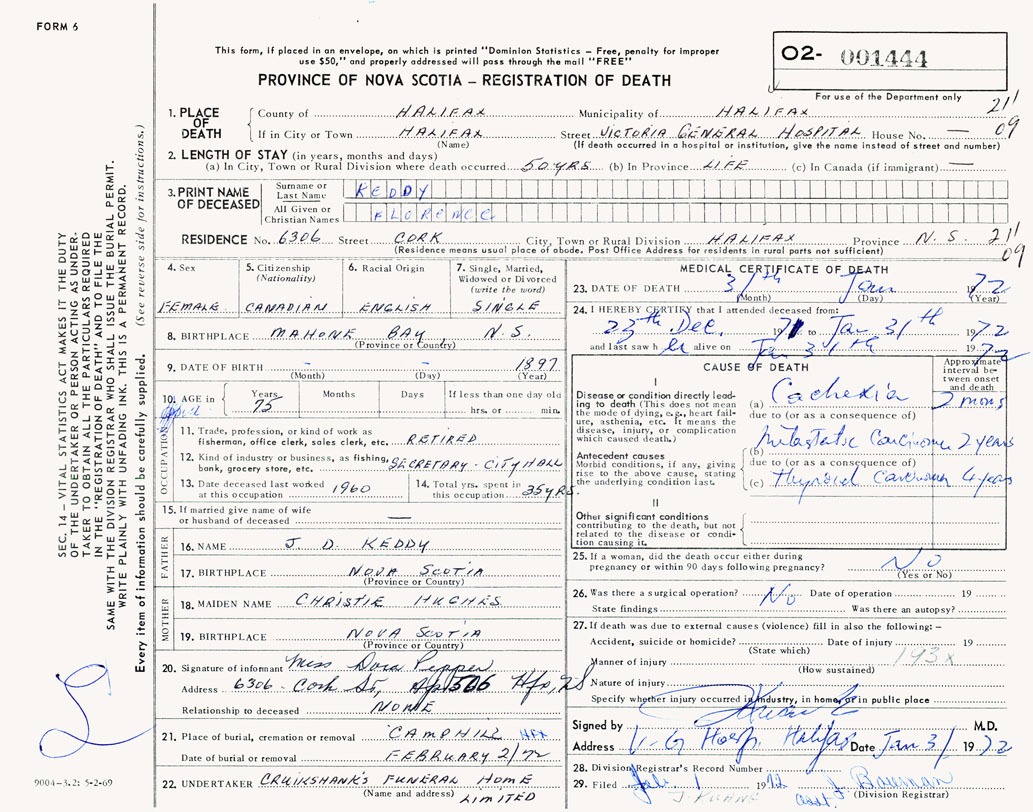 FORM 6
This form, if placed in an envelope, on which is printed "Dominion Statistics – Free, penalty for improper
use $50," and properly addressed will pass through the mail "FREE"
PROVINCE OF NOVA SCOTIA – REGISTRATION OF DEATH
O2- 001444
For use of the Department only
21'
09
1. PLACE OF DEATH
County of HALIFAX Municipality of HALIFAX
If in City or Town HALIFAX Street VICTORIA GENERAL HOSPITAL House No. —
(Name) (If death occurred in a hospital or institution, give the name instead of street and number)
2. LENGTH OF STAY (in years, months and days)
(a) In City, Town or Rural Division where death occurred 50 YRS. (b) In Province LIFE (c) In Canada (if immigrant) —
3. PRINT NAME OF DECEASED
Surname or Last Name KEDDY
All Given or Christian Names FLORENCE
RESIDENCE No. 6306 Street CORK City, Town or Rural Division HALIFAX Province N. S. 21'
09
(Residence means usual place of abode. Post Office Address for residents in rural parts not sufficient)
4. Sex
FEMALE
5. Citizenship
(Nationality)
CANADIAN
6. Racial Origin
ENGLISH
7. Single, Married,
Widowed or Divorced
(write the word)
SINGLE
8. BIRTHPLACE MAHONE BAY N. S.
(Province or Country)
9. DATE OF BIRTH – – 1897
(Month) (Day) (Year)
10. AGE in
Years Months Days If less than one day old
75 hrs. or min.
OCCUPATION
11. Trade, profession, or kind of work as
fisherman, office clerk, sales clerk, etc. RETIRED
12. Kind of industry or business, as fishing,
bank, grocery store, etc. SECRETARY - CITY HALL
13. Date deceased last worked
at this occupation 1960
14. Total yrs. spent in
this occupation 35 YRS.
15. If married give name of wife
or husband of deceased —
FATHER
16. NAME J. D. KEDDY
17. BIRTHPLACE NOVA SCOTIA
(Province or Country)
MOTHER
18. MAIDEN NAME CHRISTIE HUGHES
19. BIRTHPLACE NOVA SCOTIA
(Province or Country)
20. Signature of informant Miss Dora Pepper
Address 6306 - Cork St, Ap 506 Hfx, NS
Relationship to deceased NONE
21. Place of burial, cremation or removal CAMPHILL HFX
Date of burial or removal FEBRUARY 2/72
22. UNDERTAKER CRUIKSHANK'S FUNERAL HOME
(Name and address) LIMITED
MEDICAL CERTIFICATE OF DEATH
23. DATE OF DEATH 31th Jan 1972
(Month) (Day) (Year)
24. I HEREBY CERTIFY that I attended deceased from:
23th Dec. 1971 to Jan 31th 1972
and last saw h er alive on Jan 31th 1972
CAUSE OF DEATH
Approximate
interval be-
tween onset
and death
I
Disease or condition directly lead-
ing to death (This does not mean
the mode of dying, e.g., heart fail-
ure, asthenia, etc. It means the
disease, injury, or complication
which caused death.)
(a) Cachexia 2 mons
due to (or as a consequence of)
Antecedent causes
Morbid conditions, if any, giving
rise to the above cause, stating
the underlying condition last.
(b) Metastatic Carcinoma 2 years
due to (or as a consequence of)
(c) Thyroid Carcinoma 4 years
II
Other significant conditions
contributing to the death, but not
related to the disease or condi-
tion causing it.
25. If a woman, did the death occur either during
pregnancy or within 90 days following pregnancy? No
(Yes or No)
26. Was there a surgical operation? No Date of operation 19
State findings Was there an autopsy?
27. If death was due to external causes (violence) fill in also the following: –
Accident, suicide or homicide? Date of injury 19
(State which)
193x
Manner of injury
(How sustained)
Nature of injury
Specify whether injury occurred in industry, in home, or in public place
Signed by M.D.
Address V.G Hosp. Halifax Date Jan 31 1972
28. Division Registrar's Record Number
29. Filed Feb 1 1972 J Bauman
asst. (Division Registrar)
SEC. 14 – VITAL STATISTICS ACT MAKES IT THE DUTY
OF THE UNDERTAKER OR PERSON ACTING AS UNDER-
TAKER TO OBTAIN ALL THE PARTICULARS REQUIRED
IN THE "REGISTRATION OF DEATH" AND TO FILE THE
SAME WITH THE DIVISION REGISTRAR WHO SHALL ISSUE THE BURIAL PERMIT.
WRITE PLAINLY WITH UNFADING INK. THIS IS A PERMANENT RECORD.
Every item of information should be carefully supplied. (See reverse side for instructions.)
9004-3.2: 5-2-69